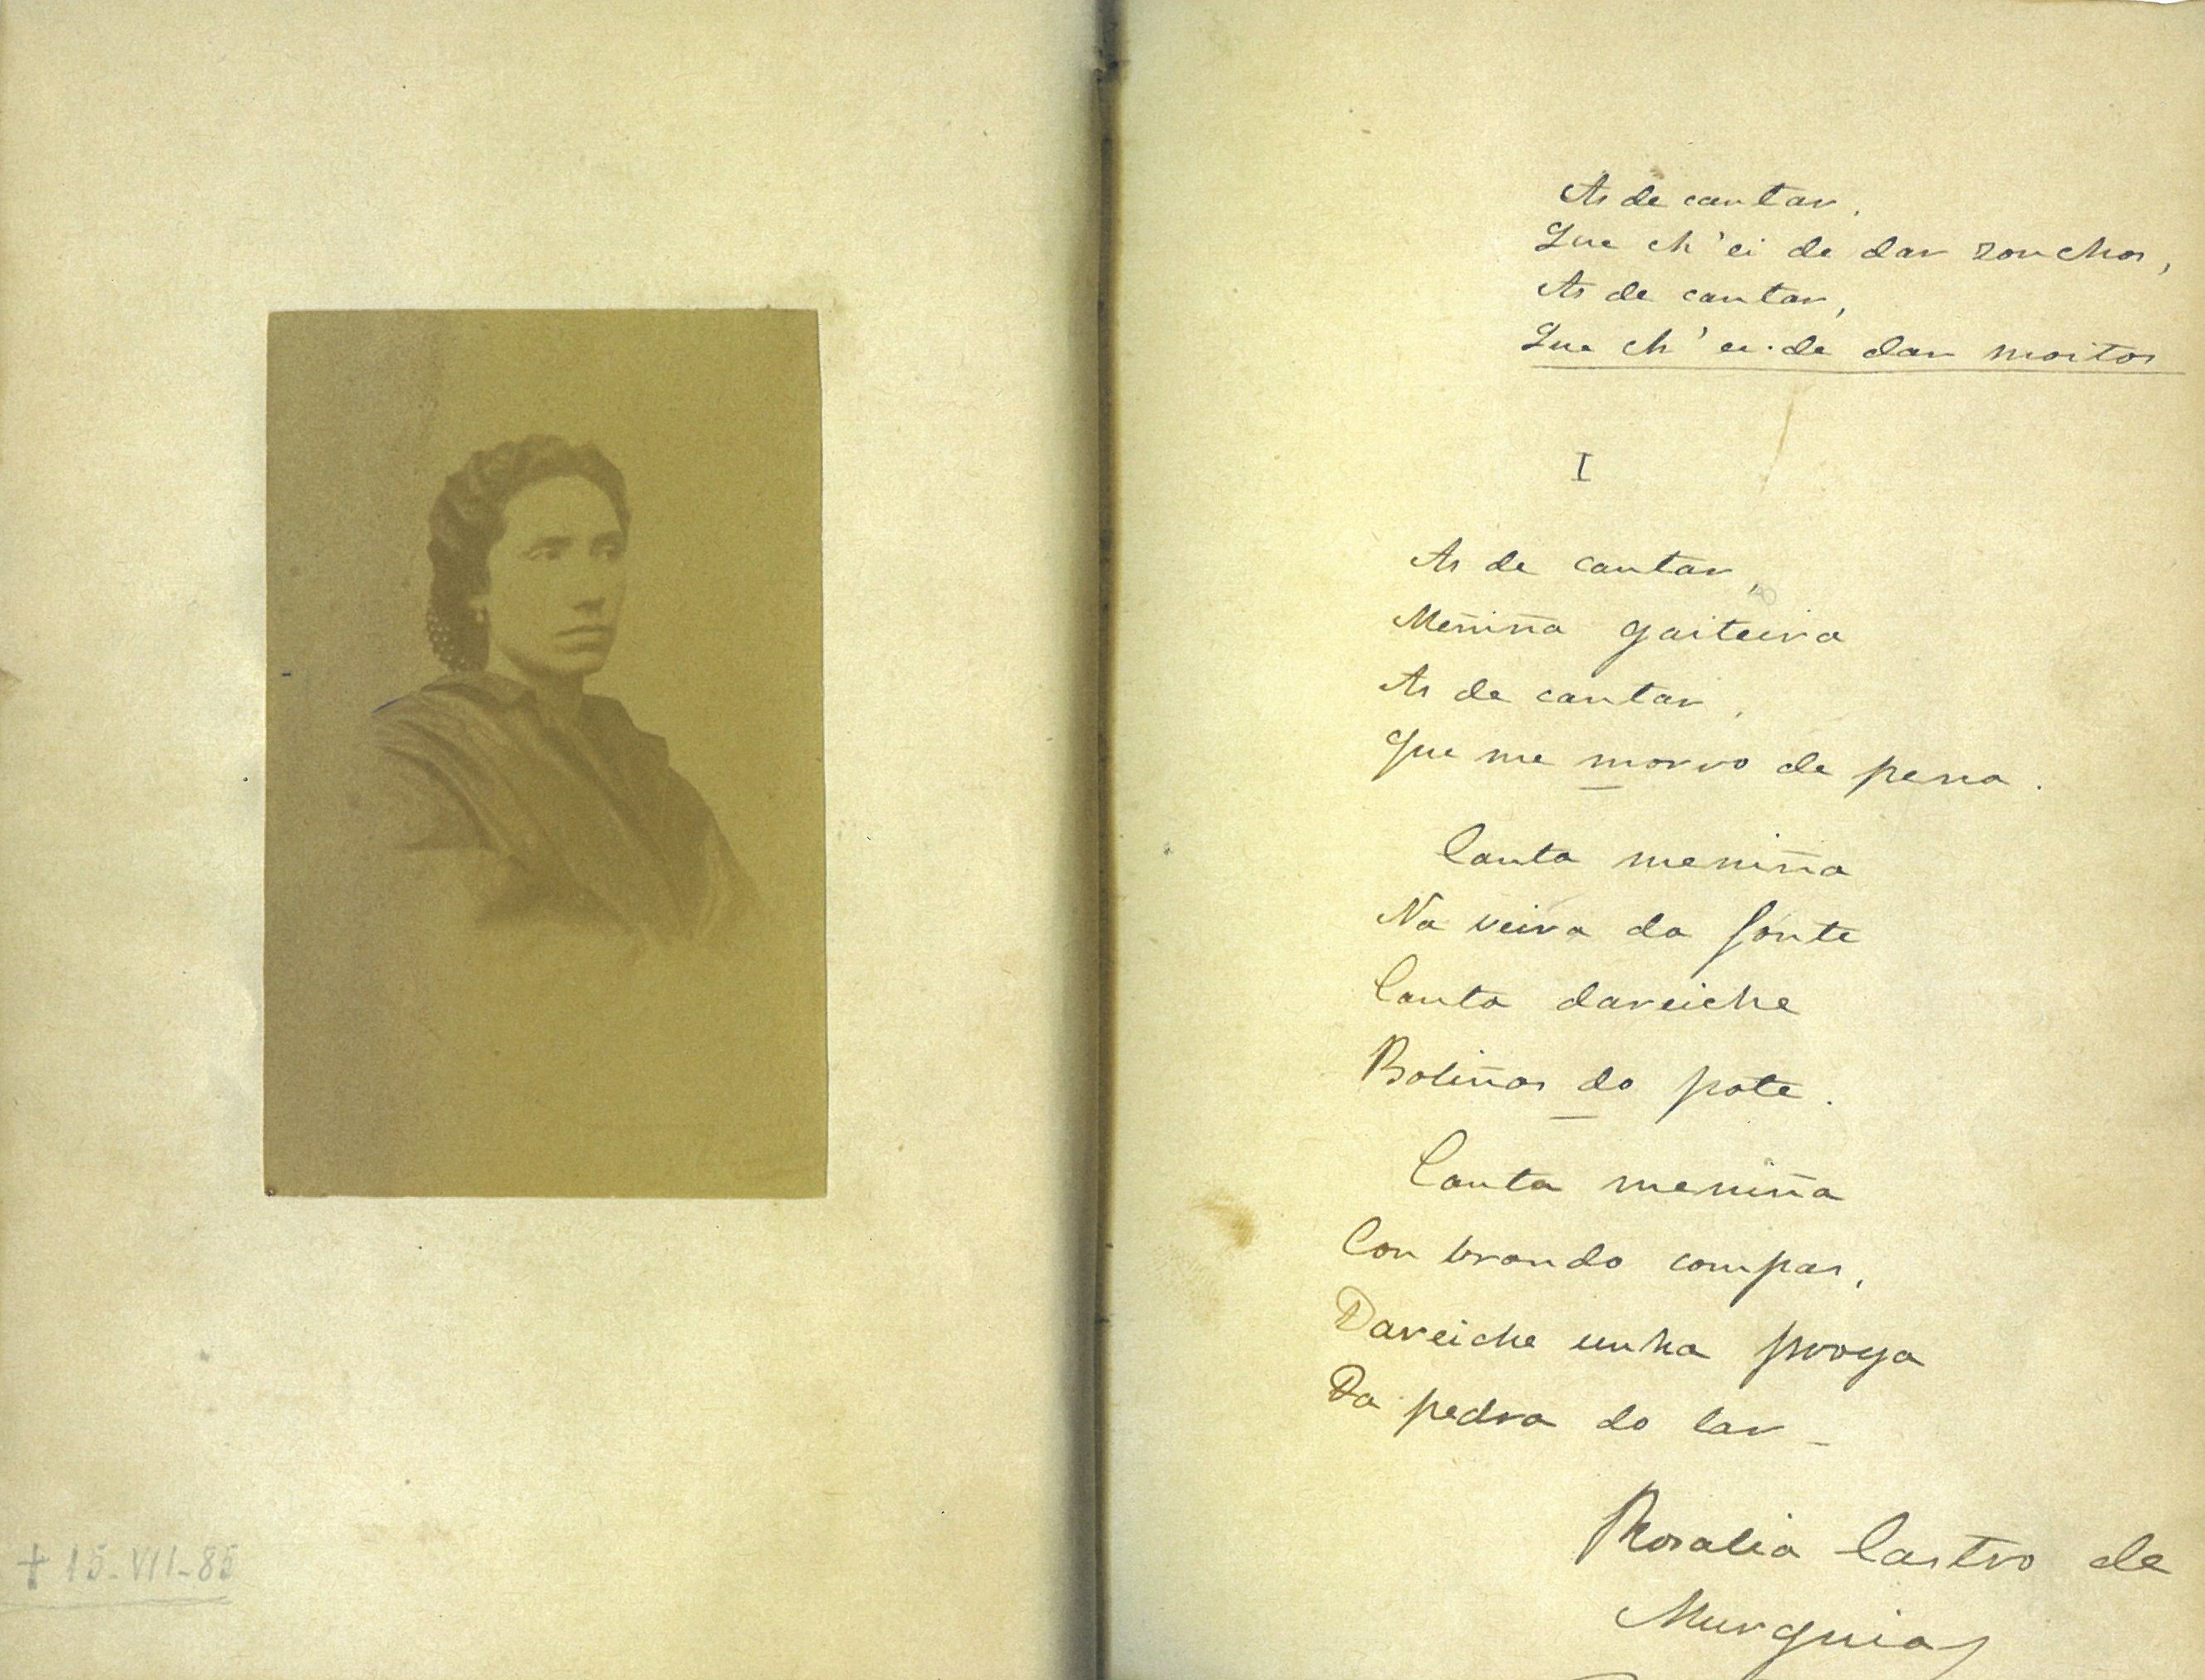 + 15-VII-85
As de cantar,
Que ch'ei de dar zonchos,
As de cantar,
Que ch'ei de dar moitos
I
As de cantar,
Meniña gaiteira
As de cantar,
Que me morro de pena.
Canta meniña
Na veira da fonte
Canta dareiche
Boliños do pote.
Canta meniña
Con brando compas,
Dareiche unha proya
Da pedra do lar_
Rosalia Castro de
Murguia